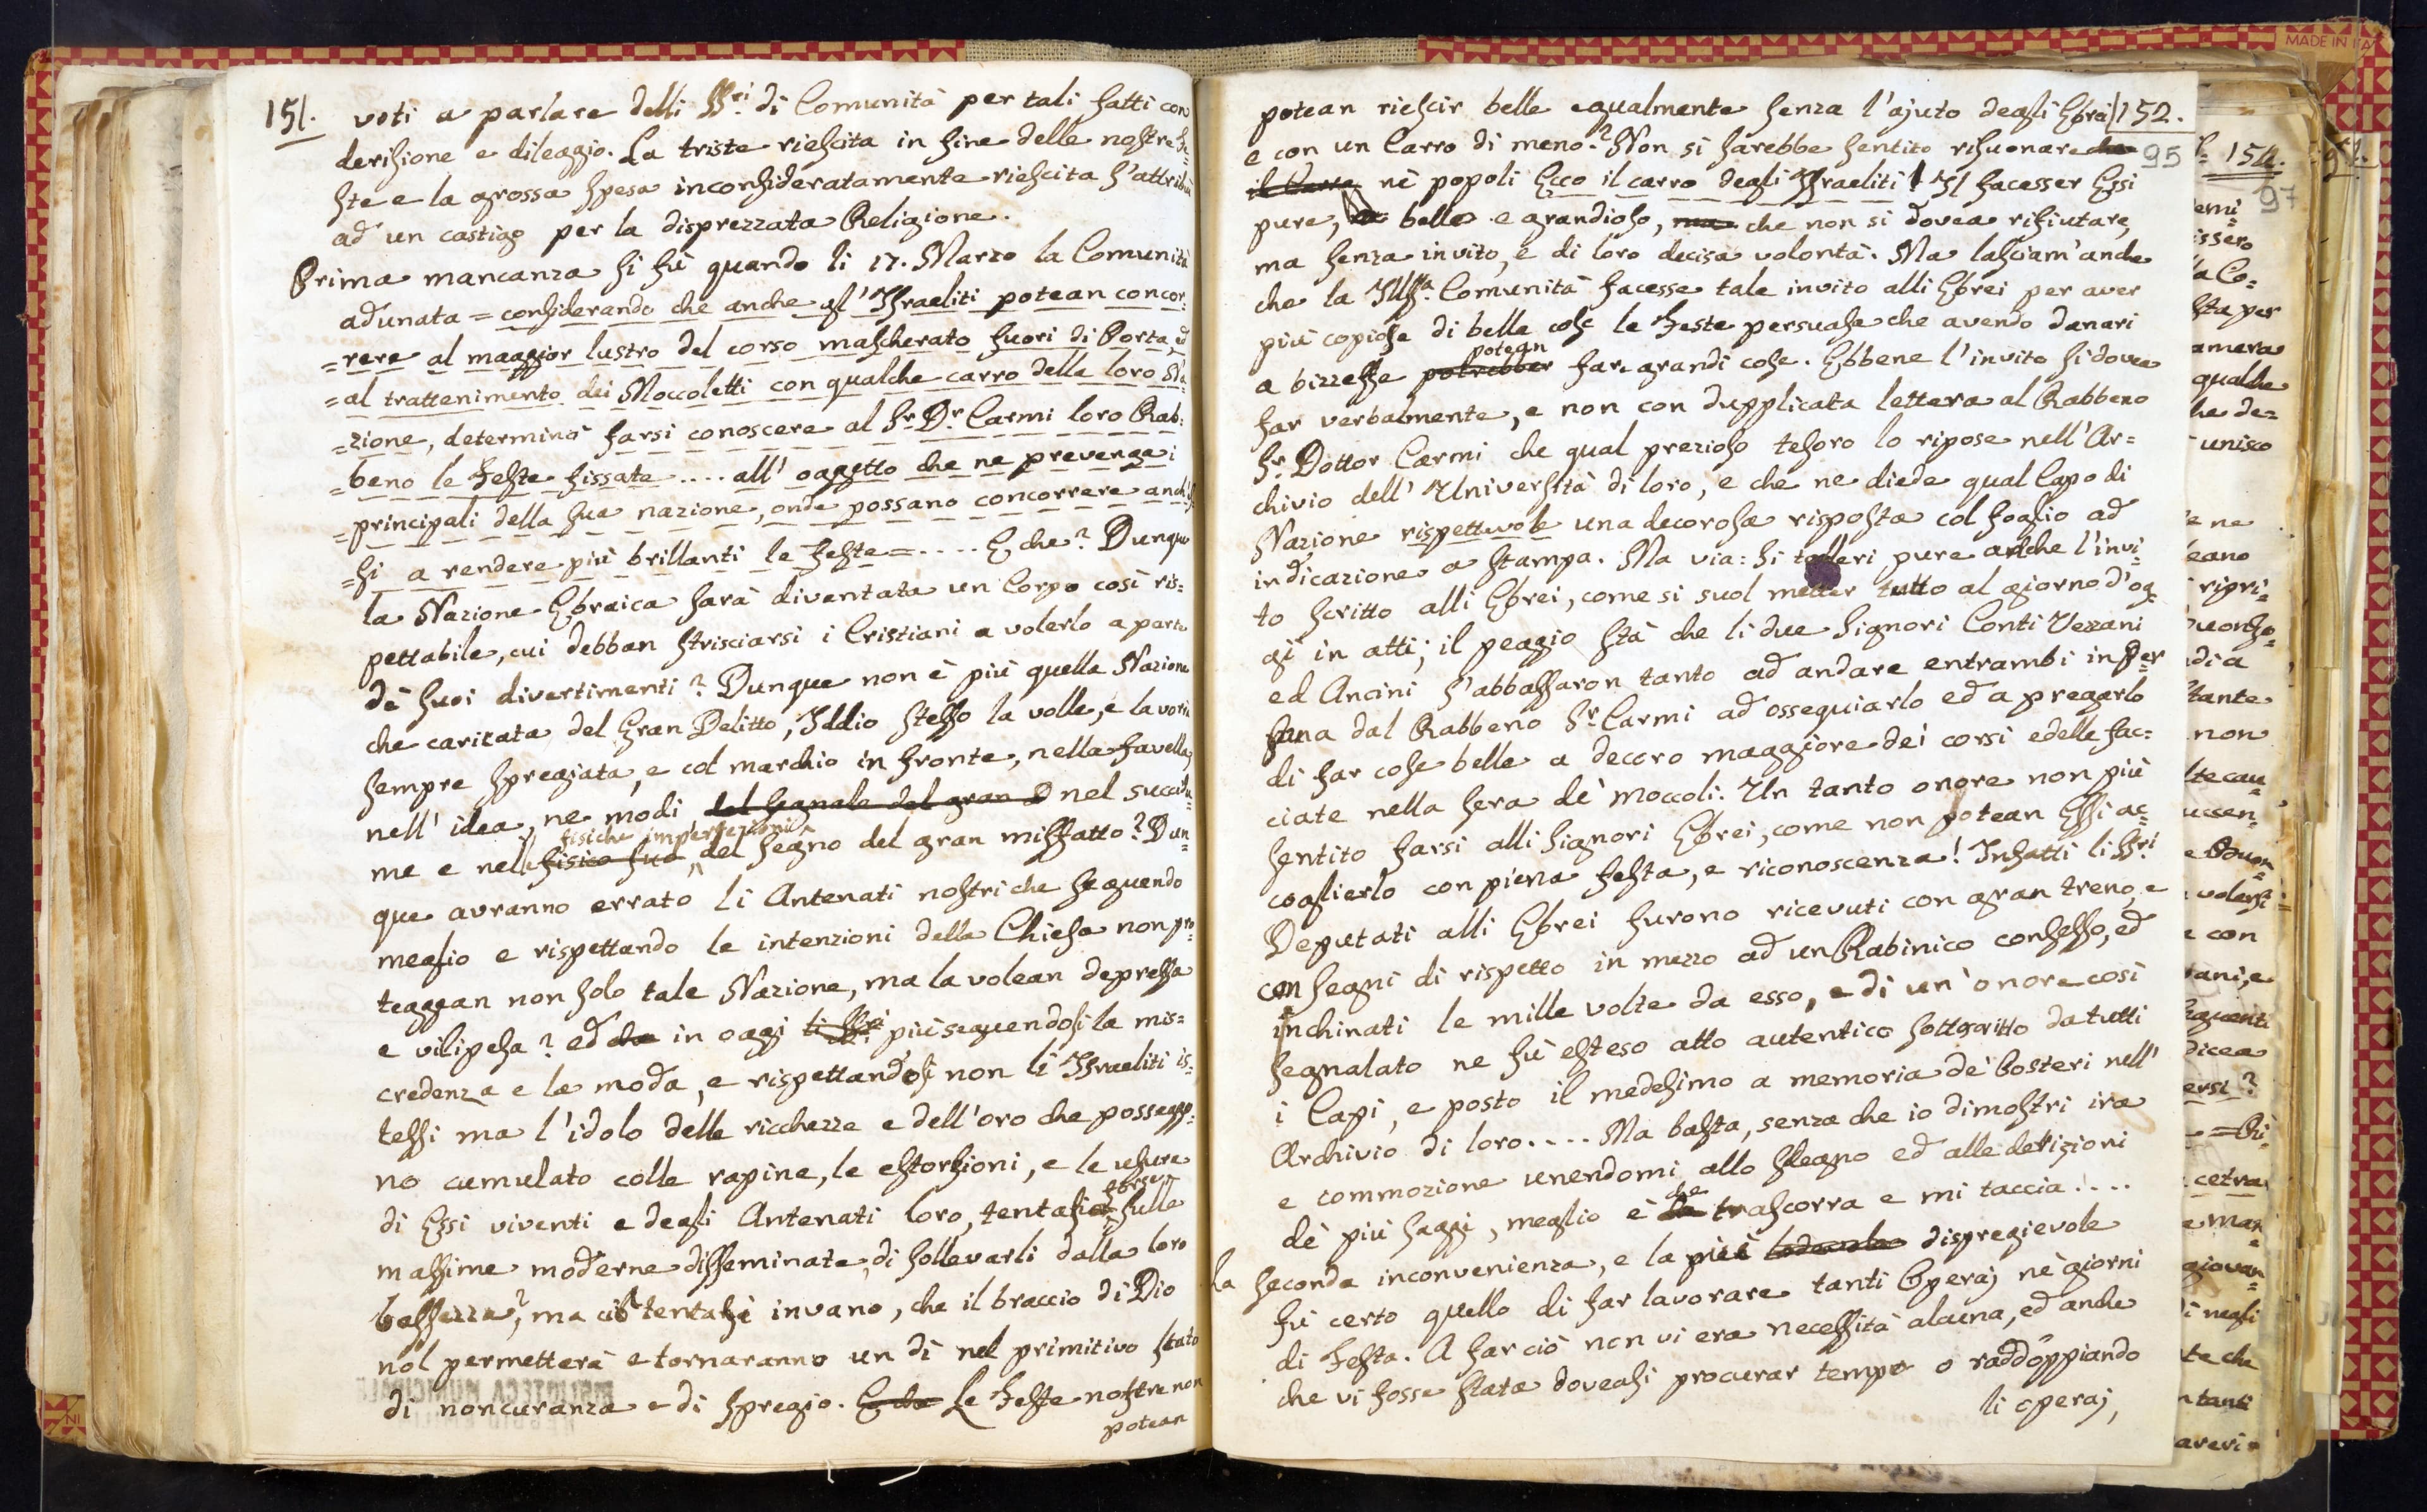 151.
voti a parlare delli SSri di Comunità per tali fatti con
derisione e dileggio. La triste riescita in fine delle nostre Fe=
ste e la grossa spesa inconsideratamente riescita s'attribuì
ad un castigo per la disprezzata Religione.
Prima mancanza si fù quando li 17. Marzo la Comunità
adunata = considerando che anche gl'Israeliti potean concor=
=rere al maggior lustro del corso mascherato fuori di Porta, ed
=al trattenimento dei Moccoletti con qualche carro della loro Na=
=zione, determinò farsi conoscere al Sr. Dr. Carmi loro Rab=
=beno le Feste fissate .... all'oggetto che ne prevenga i
=principali della sua nazione, onde possano concorrere anch'es=
=si a rendere più brillanti le Feste = .... E che? Dunque
la Nazione Ebraica sarà diventata un Corpo così ris=
pettabile, cui debban strisciarsi i Cristiani a volerlo a parte
dè suoi divertimenti? Dunque non è più quella Nazione
che caricata del Gran Delitto, Iddio stesso la volle, e la vorrà
sempre spregiata, e col marchio in fronte, nella favella,
nell'idea, ne modi del segnale del gran D nel succidu=
fisiche imperfezioni
me e nell fisico suo, del segno del gran misfatto? Dun=
que avranno errato li Antenati nostri che seguendo
meglio e rispettando le intenzioni della Chiesa non pro=
teggean non solo tale Nazione, ma la volean depressa
e vilipesa? ed che in oggi li SSri più seguendosi la mis=
credenza e la moda, e rispettandosi non li Israeliti is=
tessi ma l'idolo delle ricchezze e dell'oro che posseggo=
no cumulato colle rapine, le estorsioni, e le usure
di Essi viventi e degli Antenati loro, tentasi
forse
sulle
massime moderne disseminate, di sollevarli dalla loro
bassezza?, ma ciò tentasi invano, che il braccio di Dio
nol permetterà e tornaranno un dì nel primitivo stato
di noncuranza e di spregio. E che Le Feste nostre non
potean
BIBLIOTECA MUNICIPALE
152.
95
potean riescir belle egualmente senza l'ajuto degli Ebrei
e con un Carro di meno? Non si sarebbe sentito risuonare che
il Carro nè popoli Ecco il carro degli Israeliti! Il facesser Essi
pure, bello e grandioso, ma che non si dovea rifiutare,
ma senza invito, e di loro decisa volontà. Ma lasciam'anche
che la Illma. Comunità facesse tale invito alli Ebrei per aver
più copiose di belle cose le Feste persuasa che avendo danari
potean
a bizzeffe potrebber far grandi cose. Ebbene l'invito si dovea
far verbalmente, e non con dupplicata lettera al Rabbeno
Sr. Dottor Carmi che qual prezioso tesoro lo ripose nell'Ar=
chivio dell'Università di loro, e che ne diede qual Capo di
Nazione rispettevole una decorosa risposta col foglio ad
indicazione a stampa. Ma via: si tolleri pure anche l'invi=
to scritto alli Ebrei, come si suol metter tutto al giorno d'og=
gi in atti; il peggio stà che li due Signori Conti Vezzani
ed Ancini s'abbassaron tanto ad andare entrambi in Per=
sona dal Rabbeno Sr. Carmi ad ossequiarlo ed a pregarlo
di far cose belle a decoro maggiore dei corsi e delle fac=
ciate nella sera dè moccoli. Un tanto onore non più
sentito farsi alli Signori Ebrei, come non potean Essi ac=
coglierlo con piena festa, e riconoscenza! Infatti li SSri
Deputati alli Ebrei furono ricevuti con gran treno, e
con segni di rispetto in mezzo ad un Rabinico consesso, ed
inchinati le mille volte da esso, e di un'onore così
segnalato ne fù esteso atto autentico sottoscritto da tutti
i Capi, e posto il medesimo a memoria dè Posteri nell'
Archivio di loro.... Ma basta, senza che io dimostri ira
e commozione unendomi allo sdegno ed alle derisioni
dè più saggi, meglio è
che
trascorra e mi taccia....
La seconda inconvenienza, e la più lodevole dispregievole
fù certo quella di far lavorare tanti Operaj nè giorni
di Festa. A far ciò non vi era necessità alcuna, ed anche
che vi fosse stata doveasi procurar tempo o raddoppiando
li operaj,
154.
97